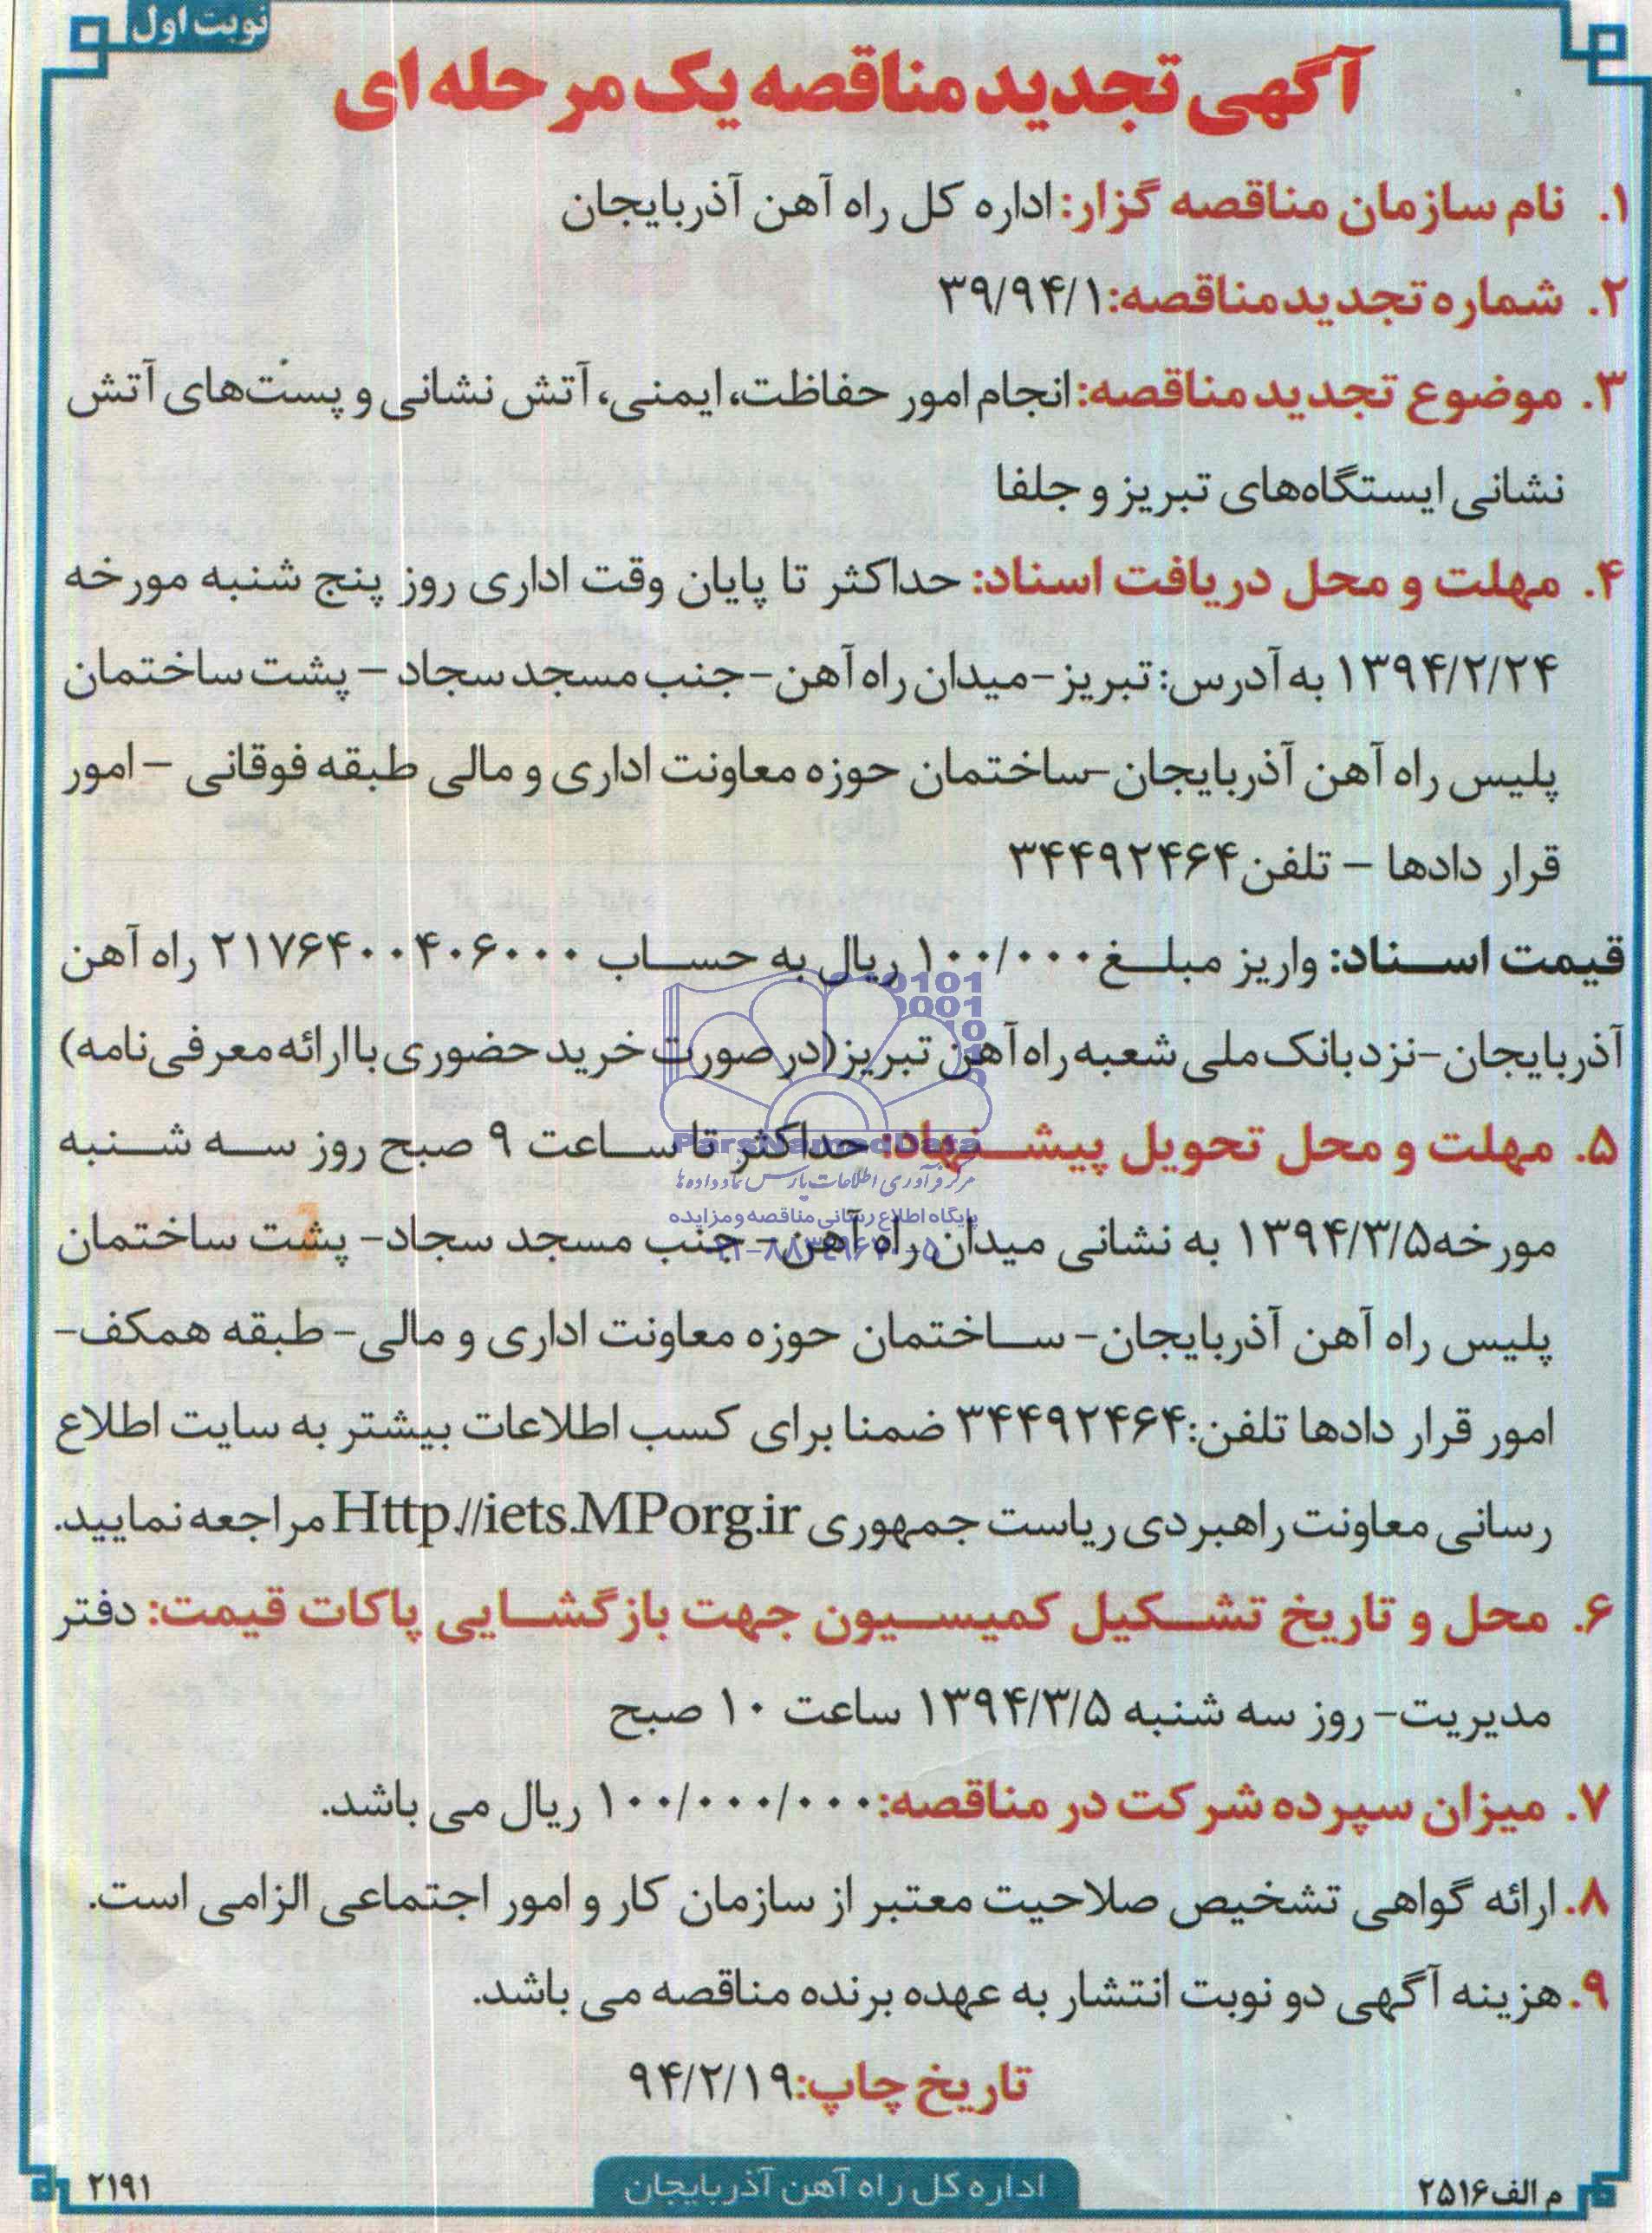 نوبت اول
آگهی تجدید مناقصه یک مرحله ای
۱. نام سازمان مناقصه گزار: اداره کل راه آهن آذربایجان
۲. شماره تجدید مناقصه: ۳۹/۹۴/۱
۳. موضوع تجدید مناقصه: انجام امور حفاظت، ایمنی، آتش نشانی و پست‌های آتش
نشانی ایستگاه‌های تبریز و جلفا
۴. مهلت و محل دریافت اسناد: حداکثر تا پایان وقت اداری روز پنج شنبه مورخه
۱۳۹۴/۲/۲۴ به آدرس: تبریز-میدان راه آهن-جنب مسجد سجاد – پشت ساختمان
پلیس راه آهن آذربایجان-ساختمان حوزه معاونت اداری و مالی طبقه فوقانی – امور
قرار دادها – تلفن ۳۴۴۹۲۴۶۴
قیمت اسناد: واریز مبلغ ۱۰۰/۰۰۰ ریال به حساب ۲۱۷۶۴۰۰۴۰۶۰۰۰ راه آهن
آذربایجان-نزد بانک ملی شعبه راه آهن تبریز (در صورت خرید حضوری با ارائه معرفی نامه)
۵. مهلت و محل تحویل پیشنهاد: حداکثر تا ساعت ۹ صبح روز سه شنبه
مورخه ۱۳۹۴/۳/۵ به نشانی میدان راه آهن- جنب مسجد سجاد- پشت ساختمان
پلیس راه آهن آذربایجان- ساختمان حوزه معاونت اداری و مالی- طبقه همکف-
امور قرار دادها تلفن: ۳۴۴۹۲۴۶۴ ضمنا برای کسب اطلاعات بیشتر به سایت اطلاع
رسانی معاونت راهبردی ریاست جمهوری Http://iets.MPorg.ir مراجعه نمایید.
۶. محل و تاریخ تشکیل کمیسیون جهت بازگشایی پاکات قیمت: دفتر
مدیریت- روز سه شنبه ۱۳۹۴/۳/۵ ساعت ۱۰ صبح
۷. میزان سپرده شرکت در مناقصه: ۱۰۰/۰۰۰/۰۰۰ ریال می باشد.
۸. ارائه گواهی تشخیص صلاحیت معتبر از سازمان کار و امور اجتماعی الزامی است.
۹. هزینه آگهی دو نوبت انتشار به عهده برنده مناقصه می باشد.
تاریخ چاپ: ۹۴/۲/۱۹
م الف ۲۵۱۶
اداره کل راه آهن آذربایجان
۲۱۹۱
ParsNamadData
پایگاه اطلاع رسانی مناقصه و مزایده